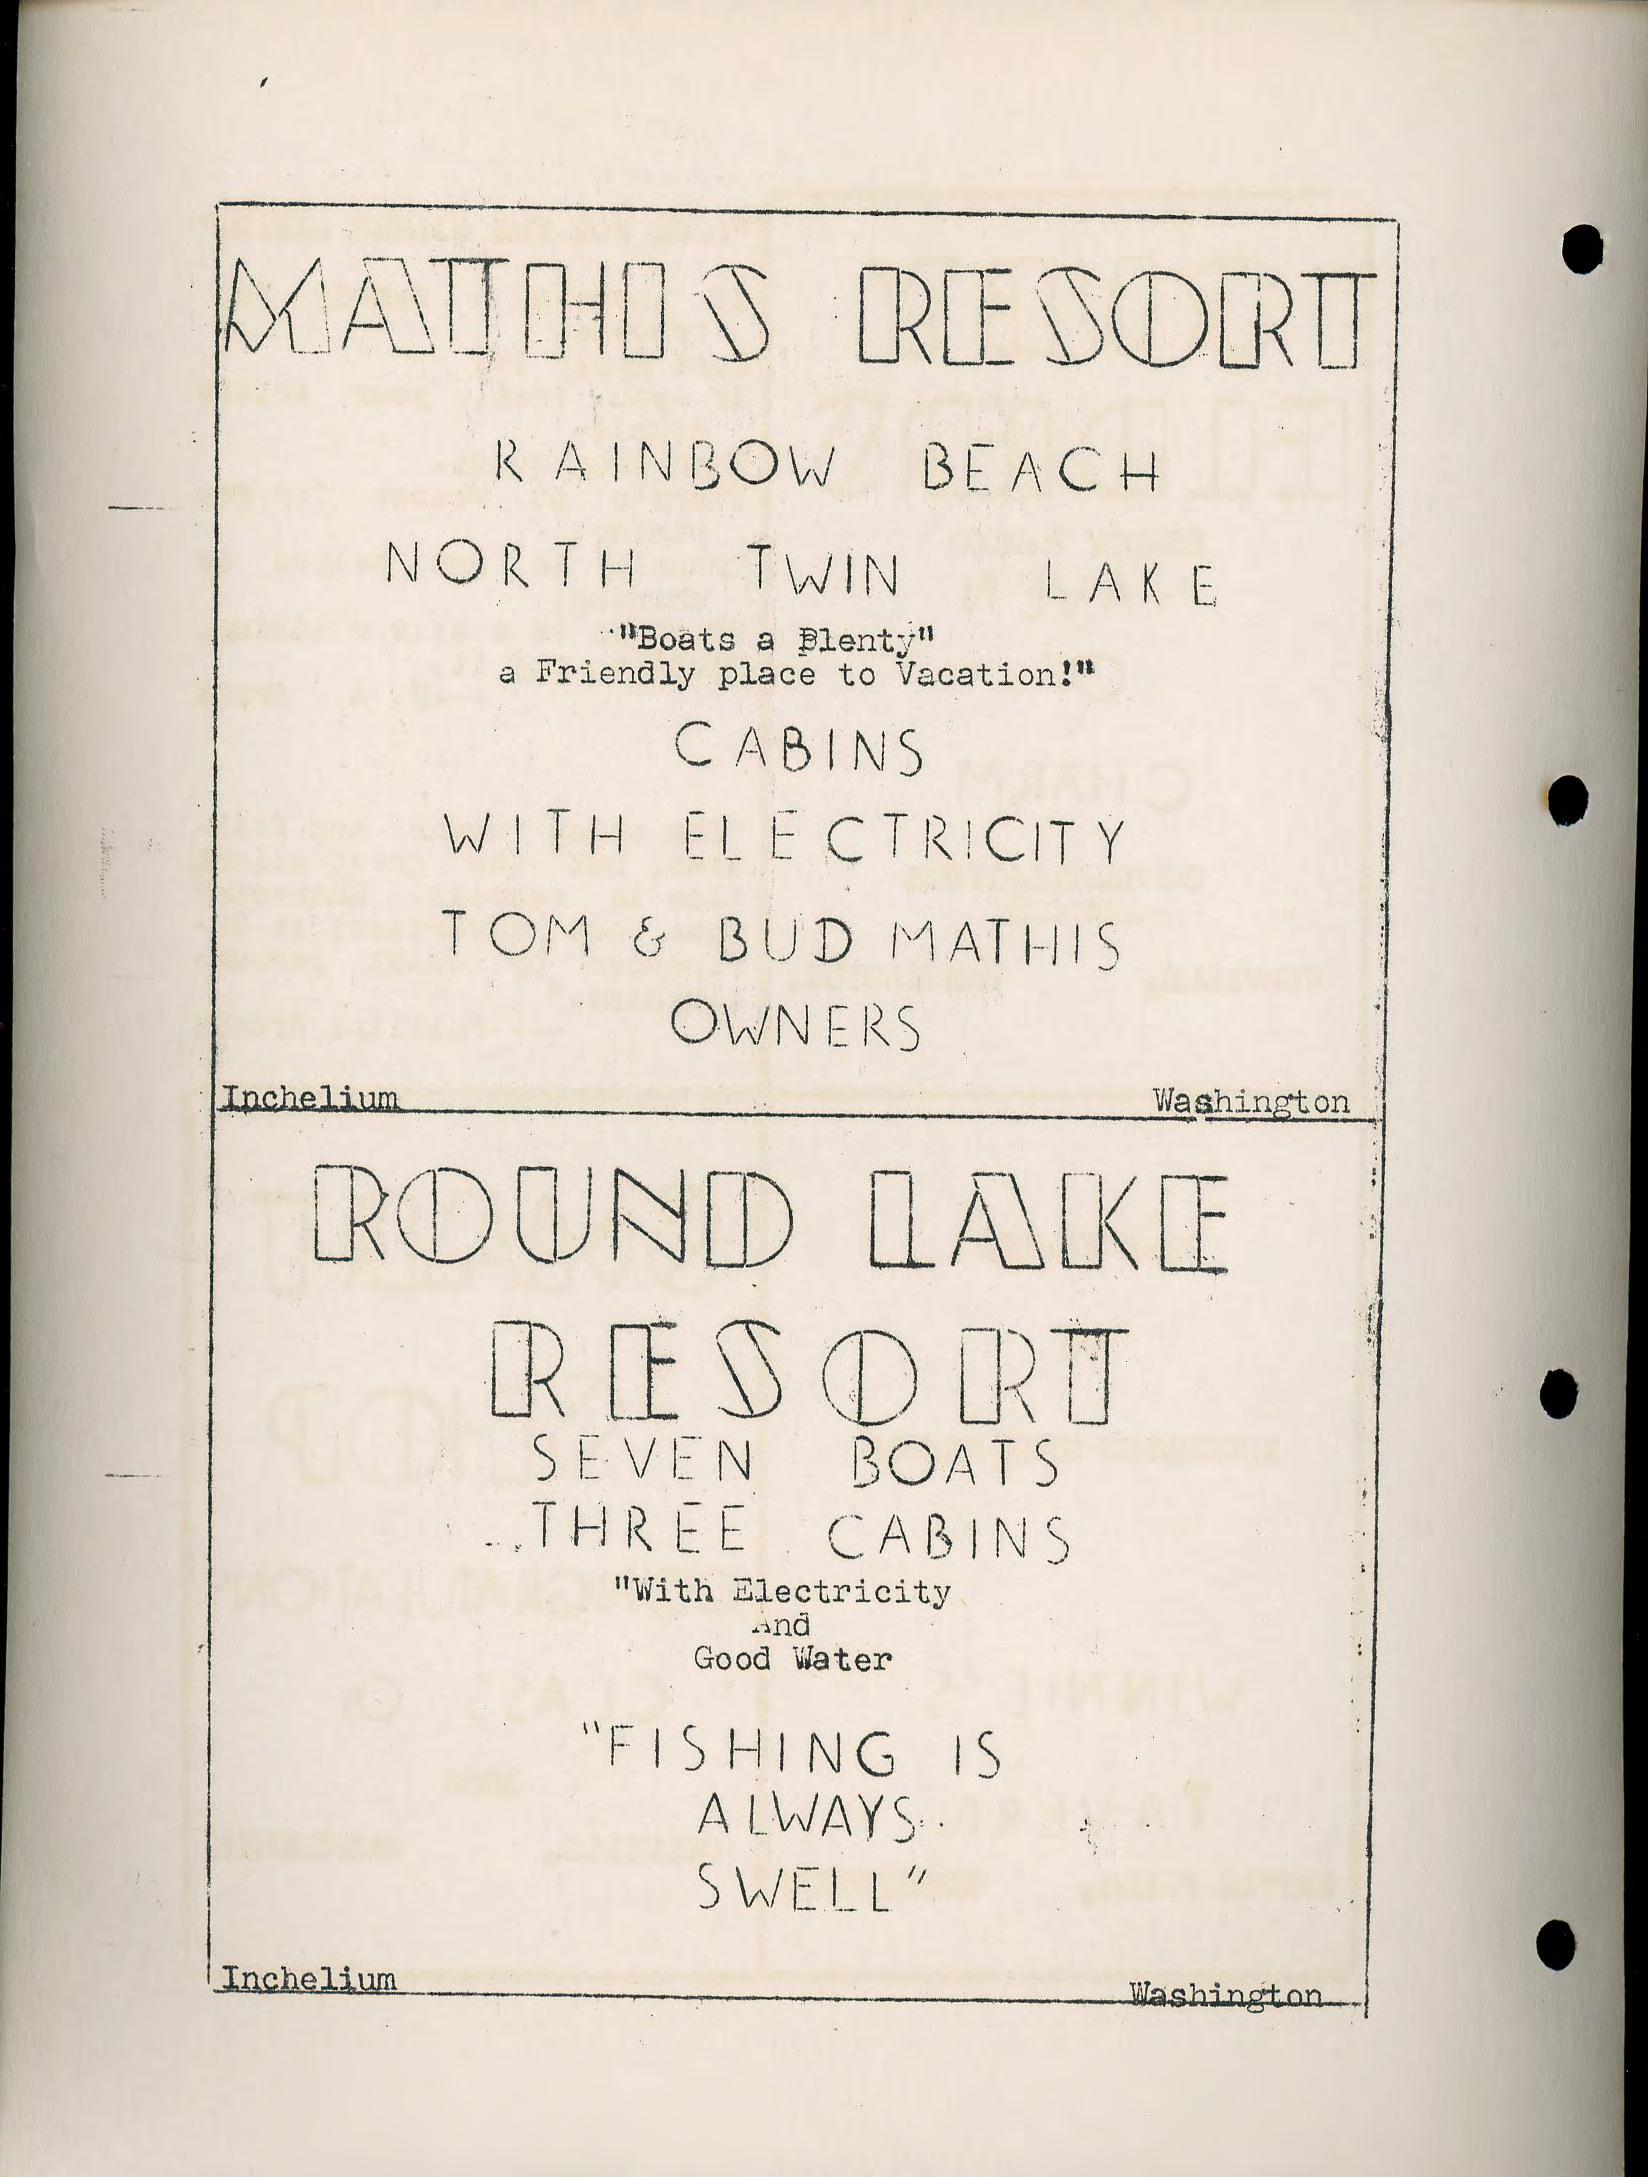 MATTHIS RESORT
RAINBOW BEACH
NORTH TWIN LAKE
"Boats a Plenty"
a Friendly place to Vacation!"
CABINS
WITH ELECTRICITY
TOM & BUD MATHIS
OWNERS
Inchelium Washington
ROUND LAKE
RESORT
SEVEN BOATS
THREE CABINS
"With Electricity
And
Good Water
"FISHING IS
ALWAYS
SWELL"
Inchelium Washington